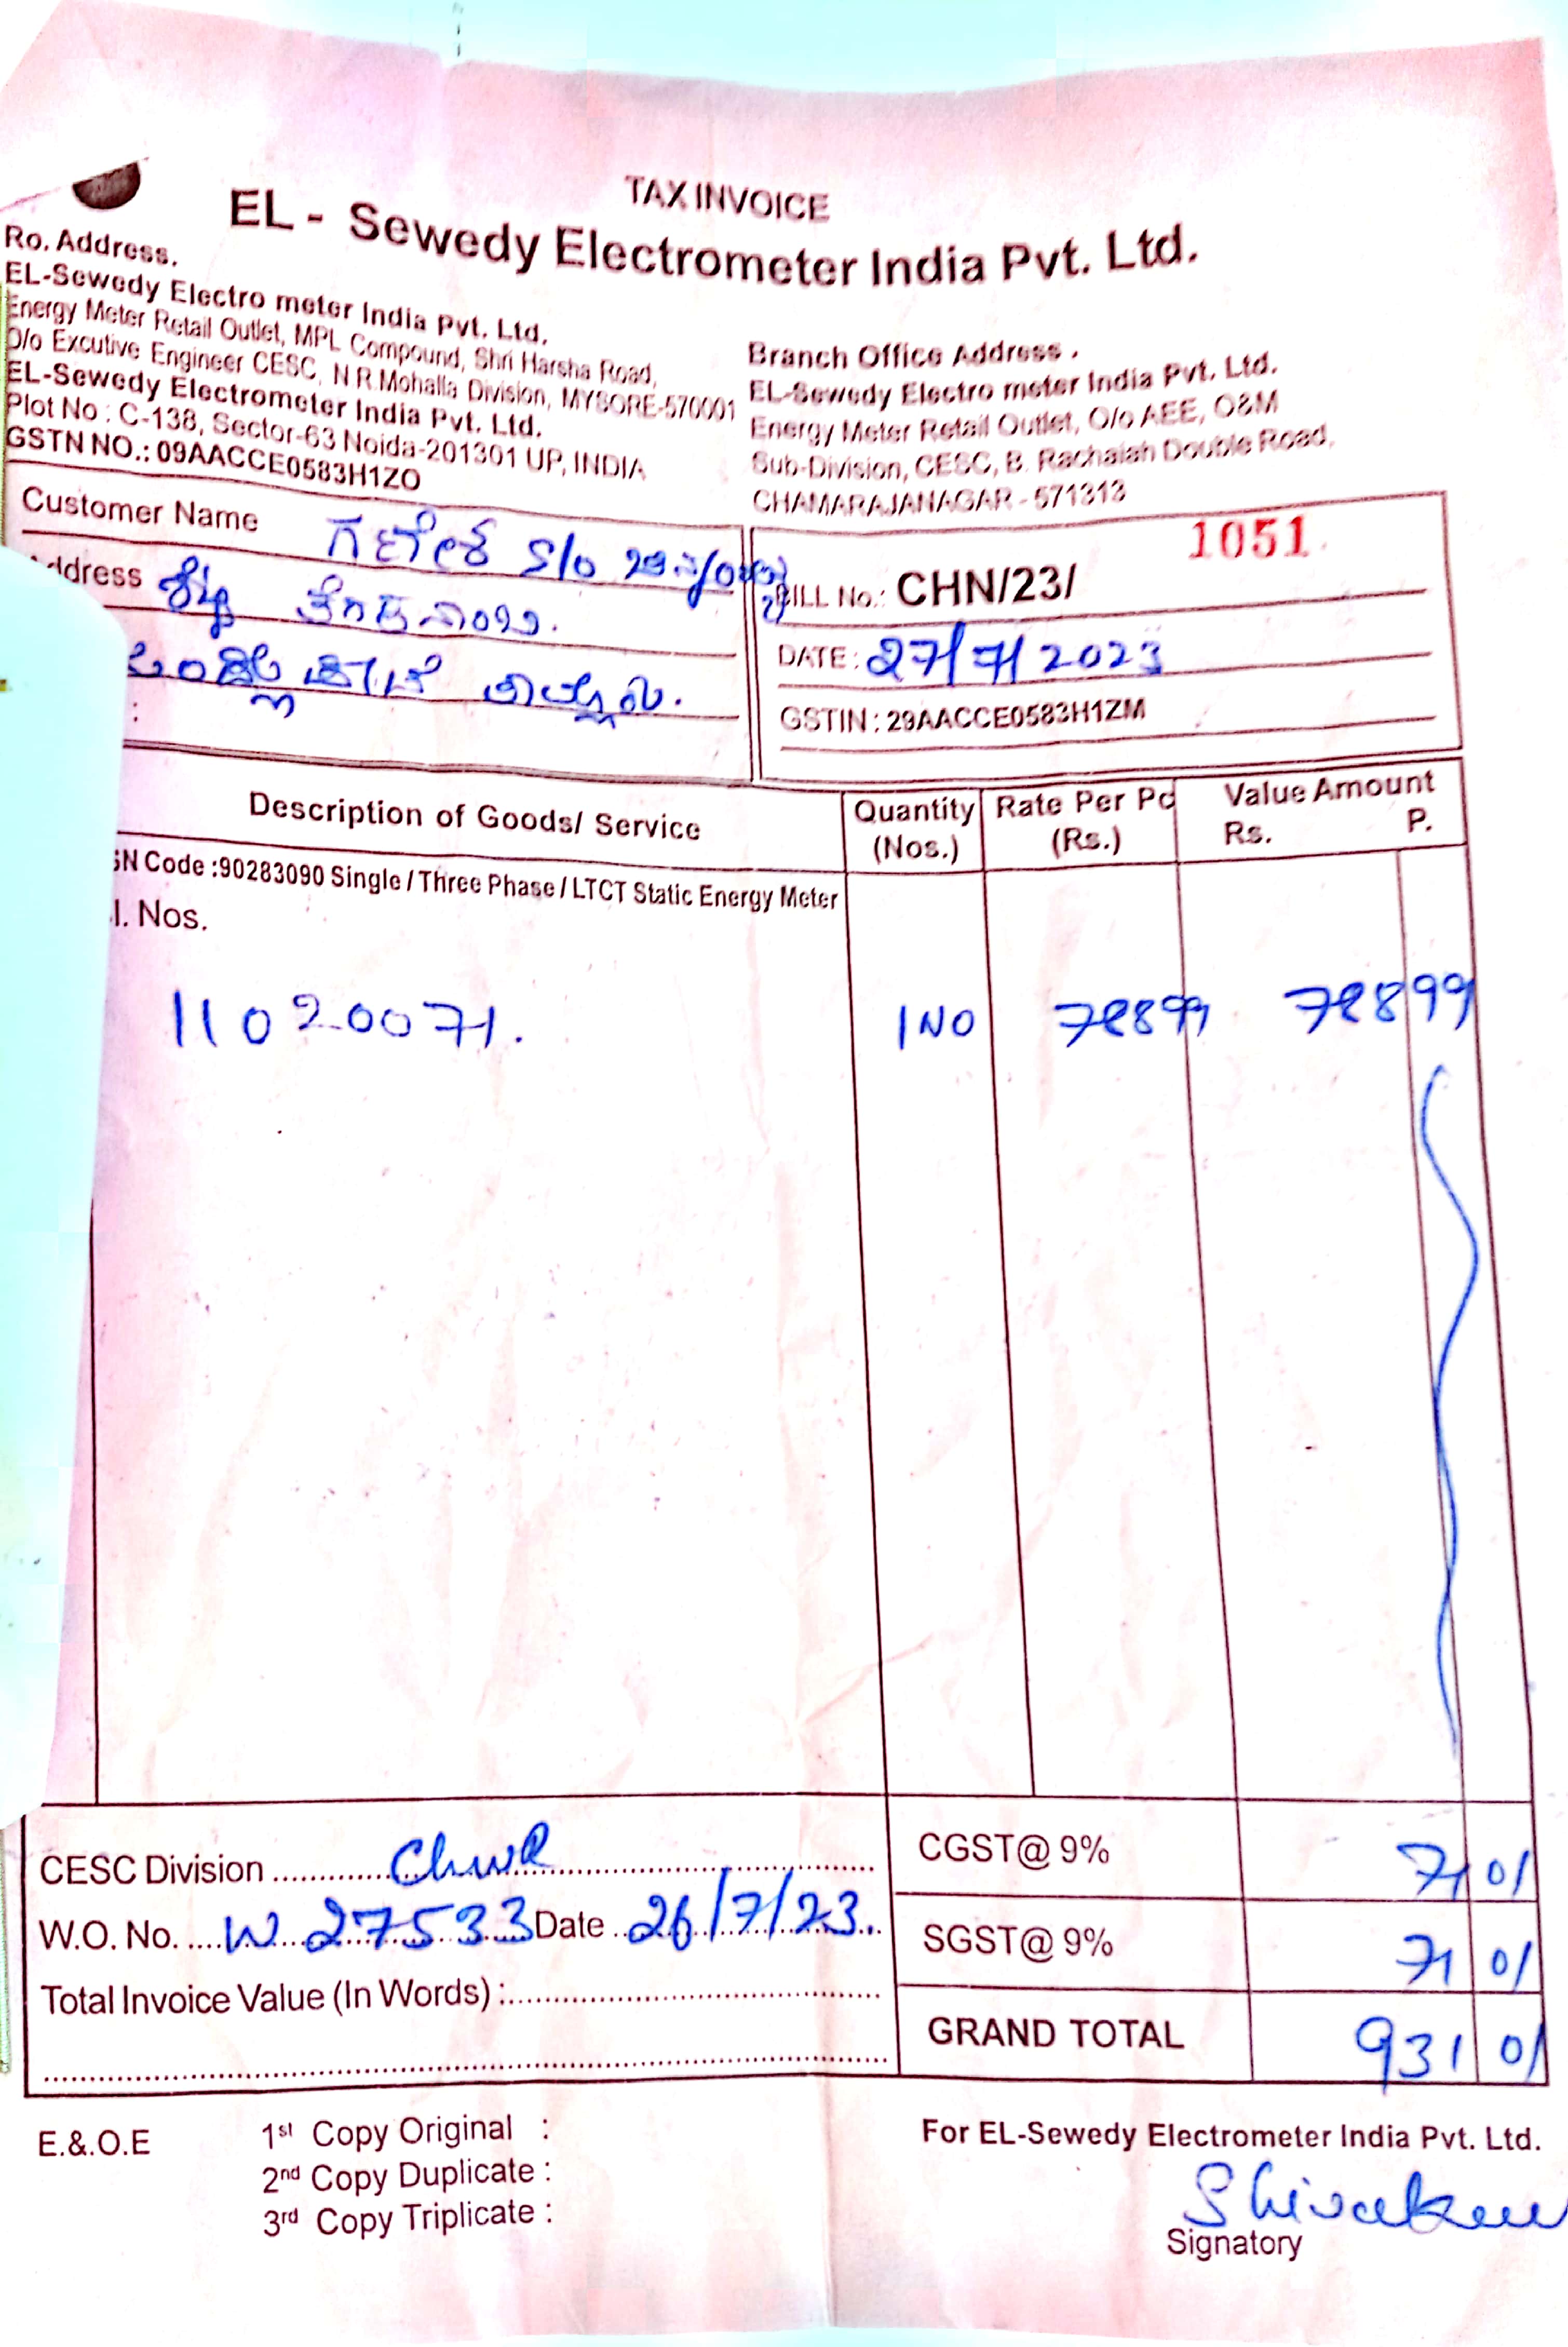 TAX INVOICE
EL - Sewedy Electrometer India Pvt. Ltd.
Ro. Address.
EL-Sewedy Electro meter India Pvt. Ltd.
Energy Meter Retail Outlet, MPL Compound, Shri Harsha Road,
O/o Excutive Engineer CESC, N R.Mohalla Division, MYSORE-570001
EL-Sewedy Electrometer India Pvt. Ltd.
Plot No : C-138, Sector-63 Noida-201301 UP, INDIA
GSTN NO.: 09AACCE0583H1ZO
Branch Office Address .
EL-Sewedy Electro meter India Pvt. Ltd.
Energy Meter Retail Outlet, O/o AEE, O&M
Sub-Division, CESC, B. Rachaiah Double Road,
CHAMARAJANAGAR - 571313
Customer Name ಗಣೇಶ S/o
ddress
:
1051
BILL No.: CHN/23/
DATE : 27/7/2023
GSTIN : 29AACCE0583H1ZM
Description of Goods/ Service
Quantity (Nos.)
Rate Per Pc (Rs.)
Value Amount
Rs. P.
SN Code :90283090 Single / Three Phase / LTCT Static Energy Meter
l. Nos.
11020071. 1NO 78899 78899
CESC Division
W.O. No. W 27533 Date 26/7/23.
Total Invoice Value (In Words) :
CGST@ 9% 71 01
SGST@ 9% 71 01
GRAND TOTAL 931 01
E.&.O.E
1st Copy Original :
2nd Copy Duplicate :
3rd Copy Triplicate :
For EL-Sewedy Electrometer India Pvt. Ltd.
Signatory